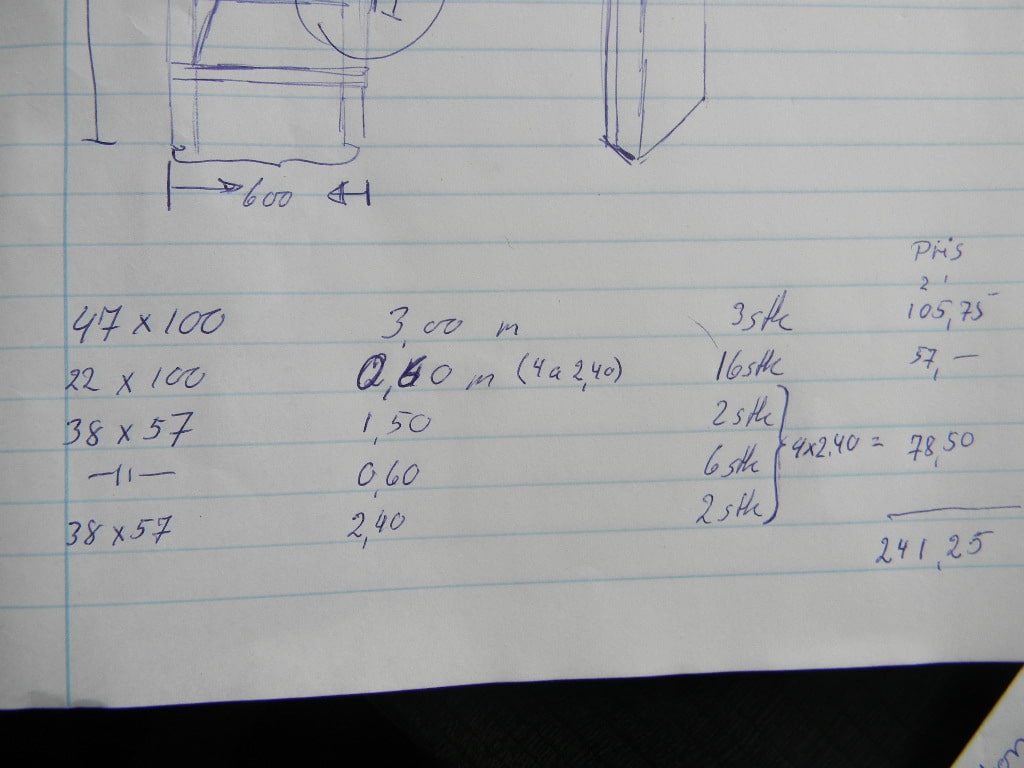 600
Pris
2 1
47 x 100 3,00 m 3 stk 105,75
22 x 100 0,60 m (4 a 2,40) 16 stk 57,—
38 x 57 1,50 2 stk
—11— 0,60 6 stk 4x2.40 = 78,50
38 x 57 2,40 2 stk
241,25